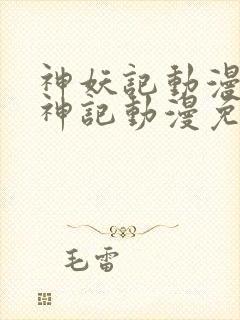 神妖記動漫
神記動漫免
毛雷